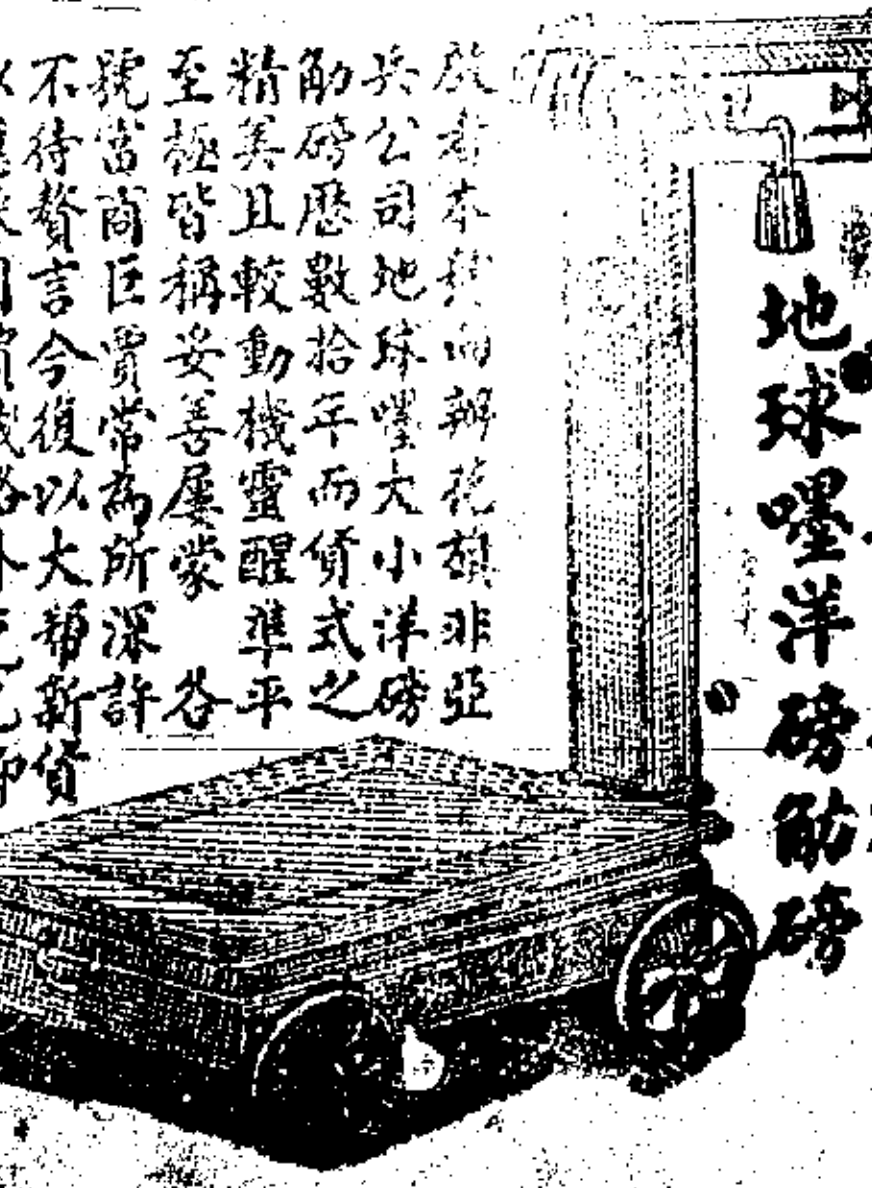 地球嘜洋磅觔磅
啟者本號向辦花旗非亞
兵公司地球嘜大小洋磅
觔磅歷數拾年而貨式之
精美且較動機靈醒準平
至極皆稱妥善屢蒙 各
號富商巨賈常為所深許
不待贅言今復以大幫新貨